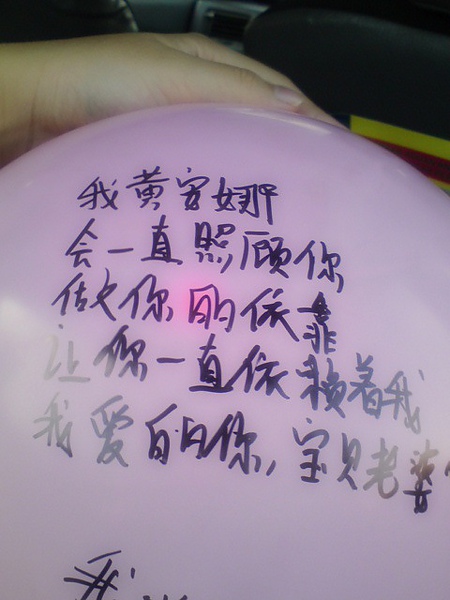 我黄安娜
会一直照顾你
做你的依靠
让你一直依赖着我
我爱的你,宝贝老婆
我